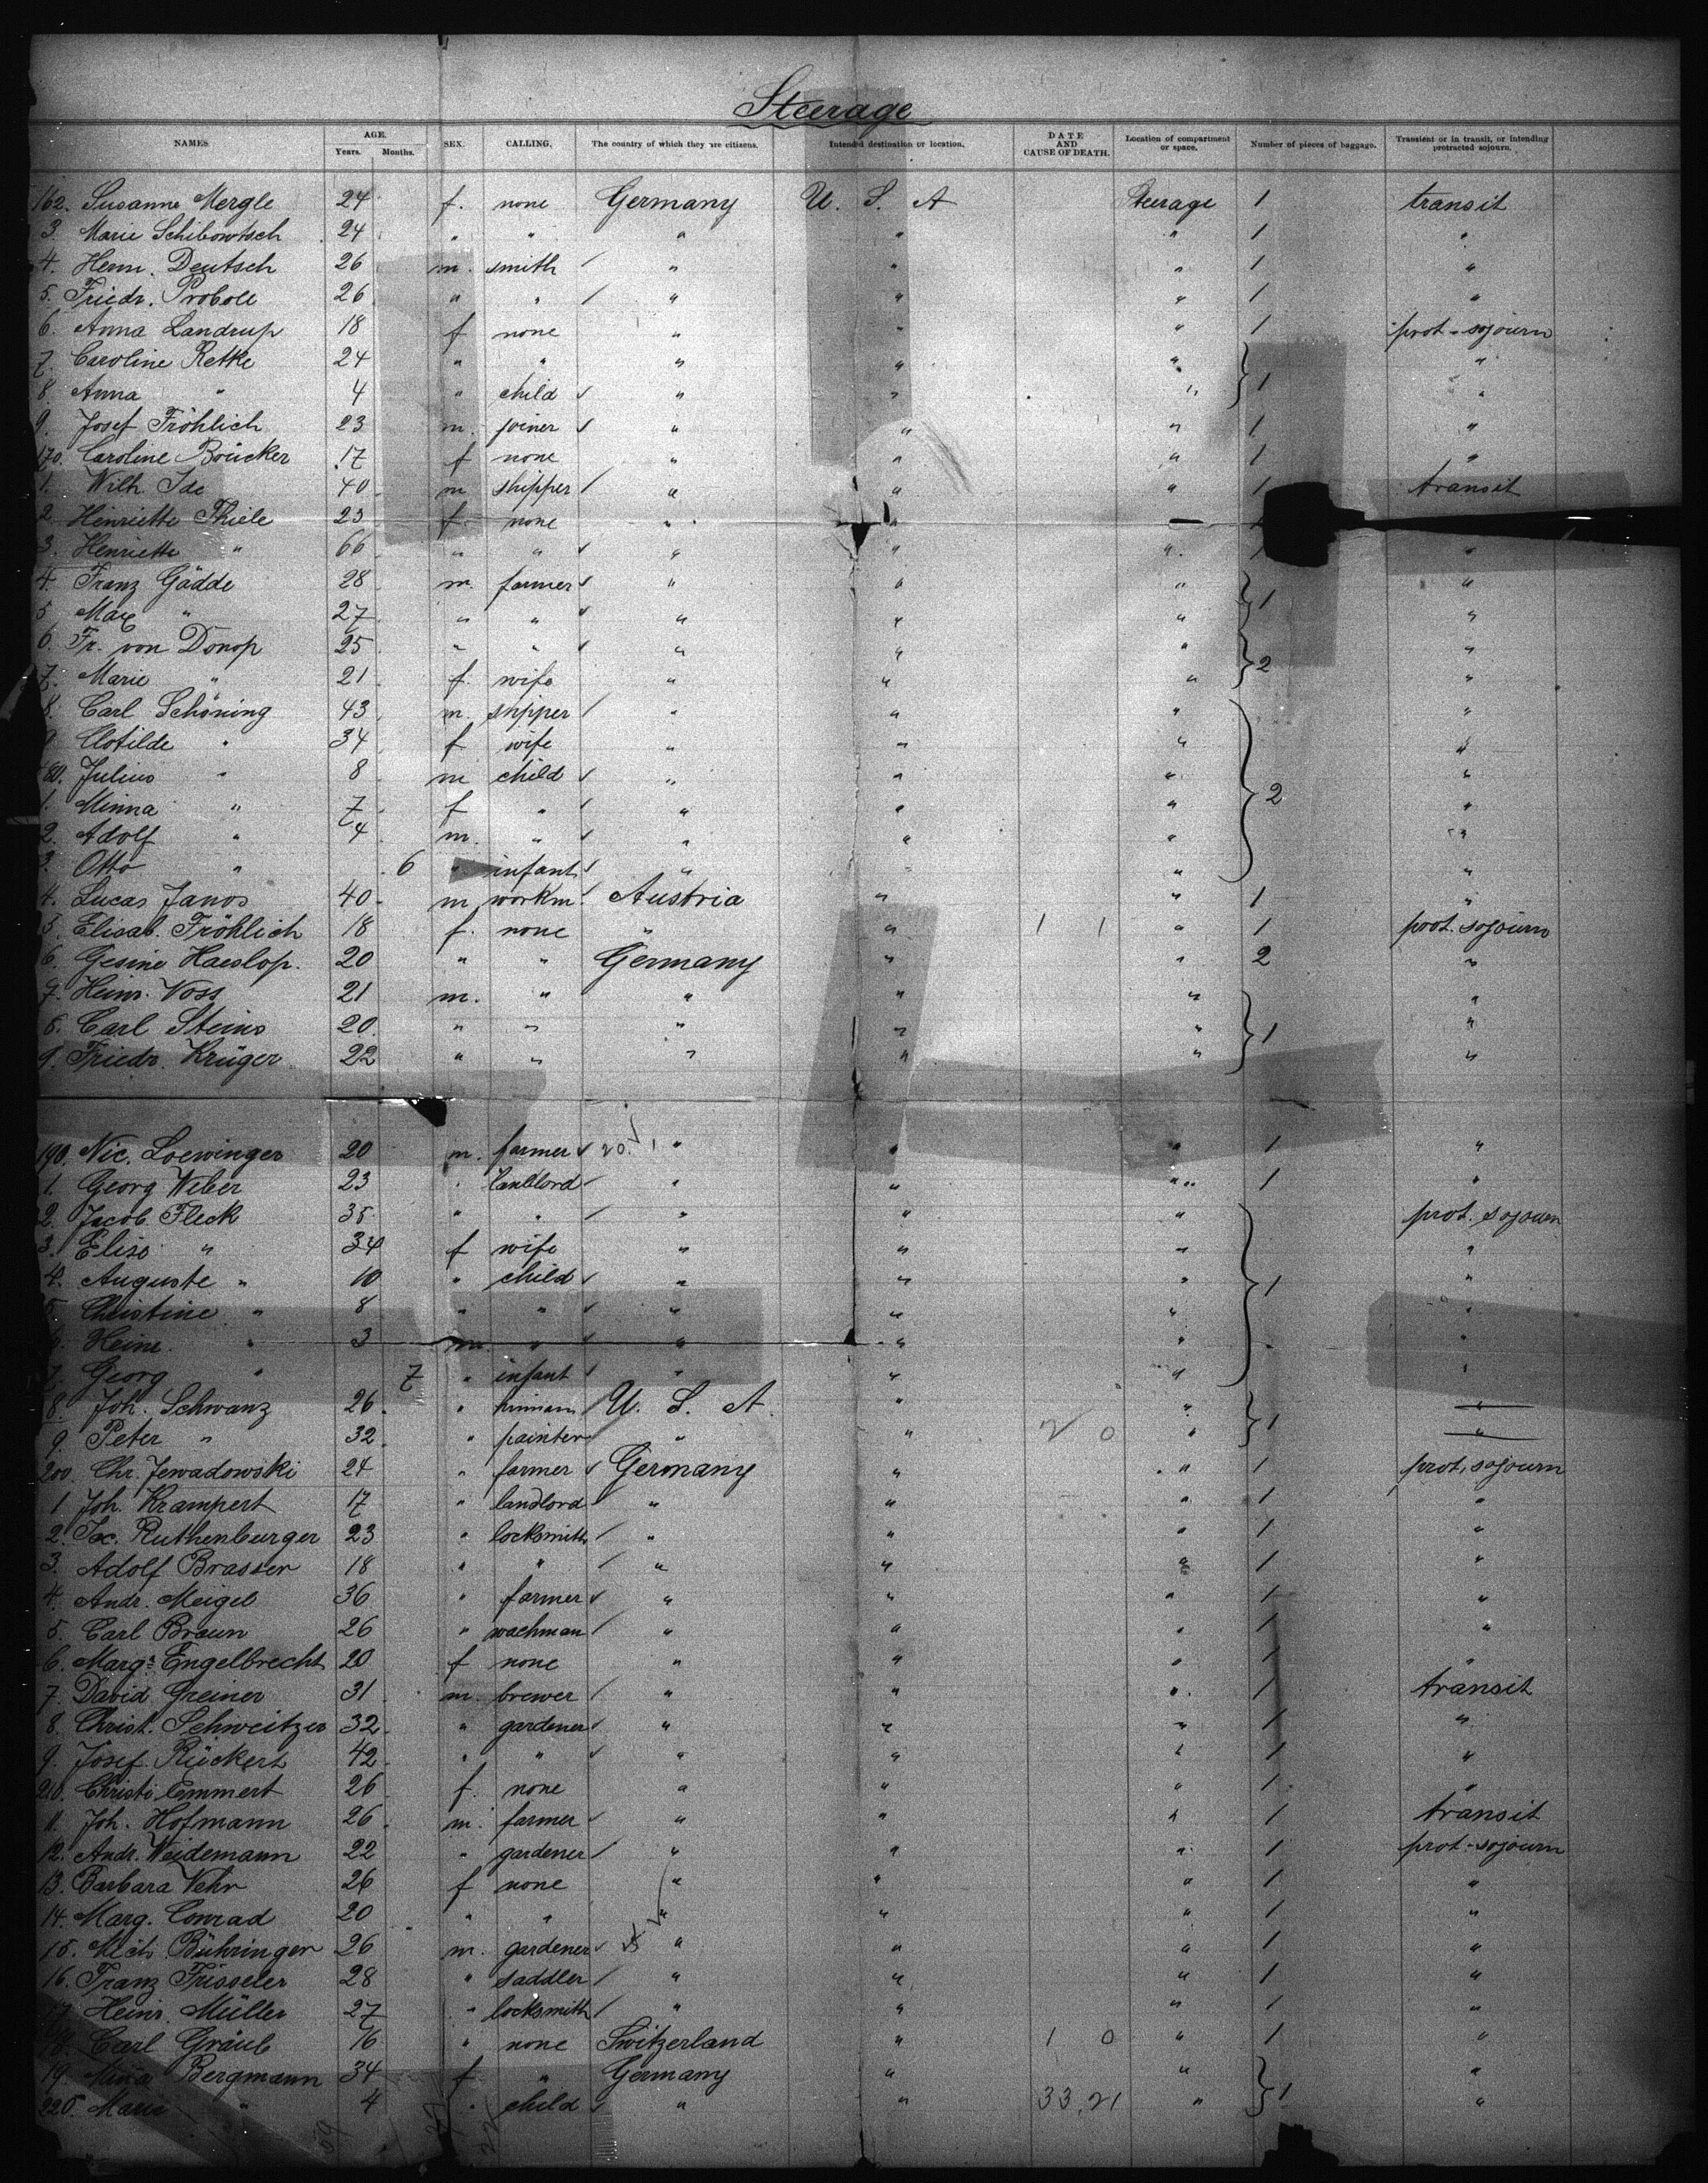 Steerage
NAMES. AGE. Years. Months. SEX. CALLING. The country of which they are citizens. Intended destination or location. DATE AND CAUSE OF DEATH. Location of compartment or space. Number of pieces of baggage. Transient or in transit, or intending protracted sojourn.
162. Susanne Mergle 24 f. none Germany U. S. A Steerage 1 transit
3. Marie Schibowtsch 24 " " " " " 1 "
4. Herm. Deutsch 26 m. smith / " " " 1 "
5. Friedr. Probole 26 " " / " " " 1 "
6. Anna Landrup 18 f none " " " 1 prot. sojourn
7. Caroline Retke 24 " " " " " "
8. Anna " 4 " child " " " 1 "
9. Josef Fröhlich 23 m. joiner " " " 1 "
170. Caroline Brücker 17 f none " " " 1 "
1. Wilh. Ide 40 m shipper / " " " 1 transit
2. Henriette Thiele 23 f. none " "
3. Henriette " 66 " " " " " 1 "
4. Franz Gädde 28 m. farmer " " " 1 "
5 Max " 27 " " " " " "
6. Fr. von Donop 25 " " " " " 2 "
7. Marie " 21 f. wife " " " "
8. Carl Schöning 43 m. shipper / " " " 2 "
9. Clotilde " 34 f wife " " " "
180. Julius " 8 m child " " " "
1. Minna " 7 f " " " " "
2. Adolf " 4 m. " " " " "
3. Otto " 6 " infant " " " "
4. Lucas Janos 40 m workm. Austria " " 1 "
5. Elisab. Fröhlich 18 f. none " " 1 1 " 1 prot. sojourn
6. Gesine Haeslop. 20 " " Germany " " 2 "
7. Heinr. Voss 21 m. " " " " "
8. Carl Steins 20 " " " " " 1 "
9. Friedr. Krüger 22 " " " " " "
190. Nic. Loewinger 20 m. farmer 20. " " " 1 "
1. Georg Weber 23 " landlord " " " 1 "
2. Jacob Fleck 35 " " / " " " prot. sojourn
3. Elise " 34 f wife " " " "
4. Auguste " 10 " child " " " 1 "
5. Christine " 8 " " " " " "
6. Heinr. " 3 m. " " " " "
7. Georg " 7 " infant " " " "
8. Joh. Schwanz 26 " U. S. A. " " 1 "
9. Peter " 32 " painter " " 2 0 " "
200. Chr. Jewadowski 24 " farmer Germany " " 1 prot. sojourn
1 Joh. Krampert 17 " landlord " " " 1 "
2. Ruthenburger 23 " locksmith / " " " 1 "
3. Adolf Brasser 18 " " / " " " 1 "
4. Andr. Meigel 36 " farmer " " " 1 "
5. Carl Braun 26 " wachman / " " " 1 "
6. Marg. Engelbrecht 20 f none " " " 1 "
7. David Greiner 31 m. brewer / " " " 1 transit
8. Christ. Schweitzer 32 " gardener " " " 1 "
9. Josef Rückert 42 " " " " " 1 "
210. Christi. Emmert 26 f. none " " " 1 "
11. Joh. Hofmann 26 m. farmer " " " 1 transit
12. Andr. Weidemann 22 " gardener / " " " 1 prot. sojourn
13. Barbara Vehr 26 f none " " " 1 "
14. Marg. Conrad 20 " " " " " 1 "
15. Mich. Bühringer 26 m. gardener " " " 1 "
16. Franz Frisseler 28 " saddler / " " " 1 "
17. Heinr. Müller 27 " locksmith / " " " 1 "
18. Carl Gräub 16 " none Switzerland " 1 0 " 1 "
19. Mina Bergmann 34 f " Germany " " 1 "
220. Marie " 4 " child " " 33.21 " "